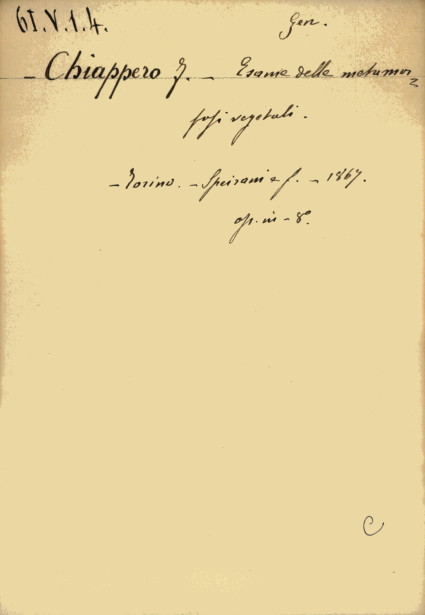 61.V.1.4.
Gen.
- Chiappero F. - Esame delle metamor
fosi vegetali.
- Torino. - Speirani e f. - 1867.
op. in - 8°.
C